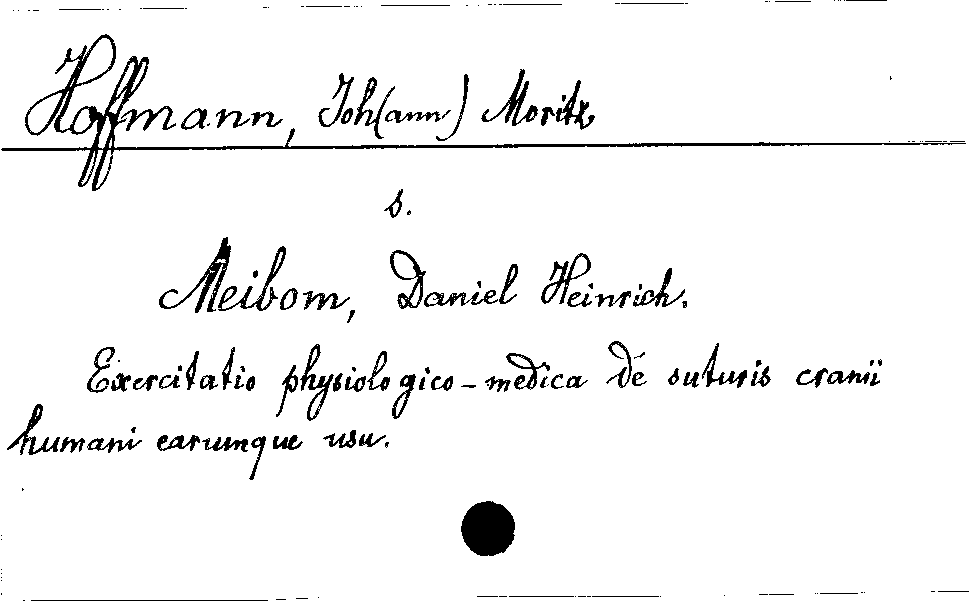 Hoffmann, Joh(ann) Moritz
s.
Meibom, Daniel Heinrich.
Exercitatio physiologico-medica de suturis cranii
humani earumque usu.